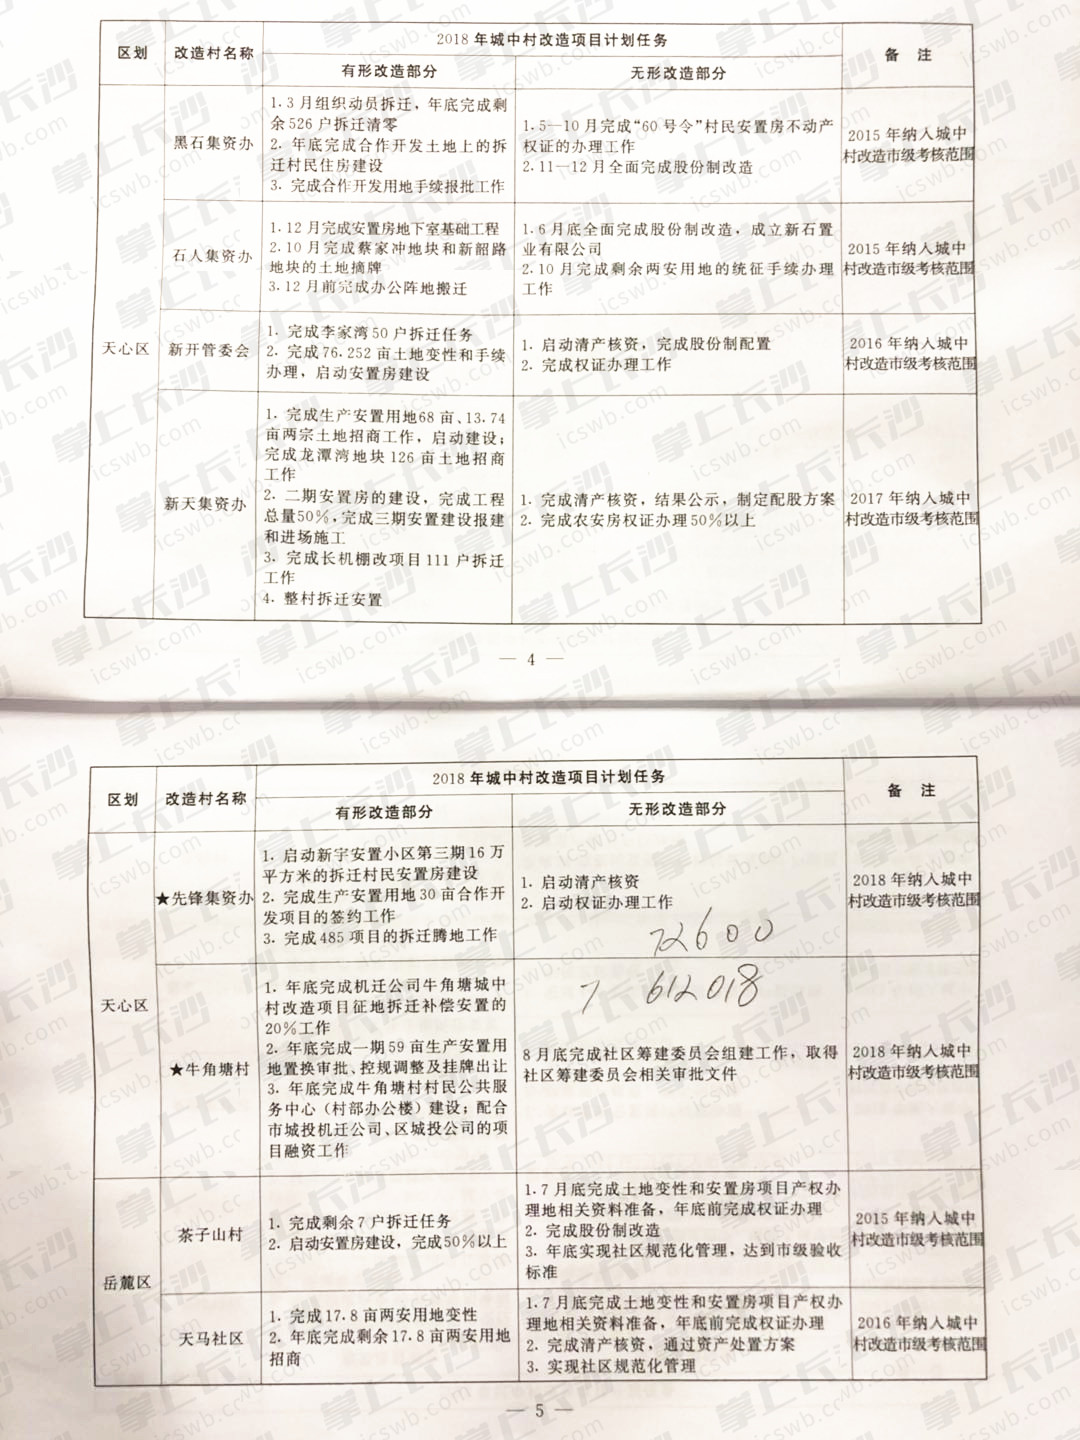 区划
改造村名称
2018年城中村改造项目计划任务
备 注
有形改造部分
无形改造部分
天心区
黑石集资办
1.3月组织动员拆迁，年底完成剩
余526户拆迁清零
2. 年底完成合作开发土地上的拆
迁村民住房建设
3. 完成合作开发用地手续报批工作
1.5—10月完成“60号令”村民安置房不动产
权证的办理工作
2.11—12月全面完成股份制改造
2015年纳入城中
村改造市级考核范围
石人集资办
1.12月完成安置房地下室基础工程
2.10月完成蔡家冲地块和新韶路
地块的土地摘牌
3.12月前完成办公阵地搬迁
1.6月底全面完成股份制改造，成立新石置
业有限公司
2.10月完成剩余两安用地的统征手续办理
工作
2015年纳入城中
村改造市级考核范围
新开管委会
1. 完成李家湾50户拆迁任务
2. 完成76.252亩土地变性和手续
办理，启动安置房建设
1. 启动清产核资，完成股份制配置
2. 完成权证办理工作
2016年纳入城中
村改造市级考核范围
新天集资办
1. 完成生产安置用地68亩、13.74
亩两宗土地招商工作，启动建设；
完成龙潭湾地块126亩土地招商
工作
2. 二期安置房的建设，完成工程
总量50%，完成三期安置建设报建
和进场施工
3. 完成长机棚改项目111户拆迁
工作
4. 整村拆迁安置
1. 完成清产核资，结果公示，制定配股方案
2. 完成农安房权证办理50%以上
2017年纳入城中
村改造市级考核范围
— 4 —
区划
改造村名称
2018年城中村改造项目计划任务
备 注
有形改造部分
无形改造部分
天心区
★先锋集资办
1. 启动新宇安置小区第三期16万
平方米的拆迁村民安置房建设
2. 完成生产安置用地30亩合作开
发项目的签约工作
3. 完成485项目的拆迁腾地工作
1. 启动清产核资
2. 启动权证办理工作
72600
2018年纳入城中
村改造市级考核范围
★牛角塘村
1. 年底完成机迁公司牛角塘城中
村改造项目征地拆迁补偿安置的
20%工作
2. 年底完成一期59亩生产安置用
地置换审批、控规调整及挂牌出让
3. 年底完成牛角塘村村民公共服
务中心（村部办公楼）建设；配合
市城投机迁公司、区城投公司的项
目融资工作
7 612018
8月底完成社区筹建委员会组建工作，取得
社区筹建委员会相关审批文件
2018年纳入城中
村改造市级考核范围
岳麓区
茶子山村
1. 完成剩余7户拆迁任务
2. 启动安置房建设，完成50%以上
1.7月底完成土地变性和安置房项目产权办
理地相关资料准备，年底前完成权证办理
2. 完成股份制改造
3. 年底实现社区规范化管理，达到市级验收
标准
2015年纳入城中
村改造市级考核范围
天马社区
1. 完成17.8亩两安用地变性
2. 年底完成剩余17.8亩两安用地
招商
1.7月底完成土地变性和安置房项目产权办
理地相关资料准备，年底前完成权证办理
2. 完成清产核资，通过资产处置方案
3. 实现社区规范化管理
2016年纳入城中
村改造市级考核范围
— 5 —
掌上长沙
icswb.com